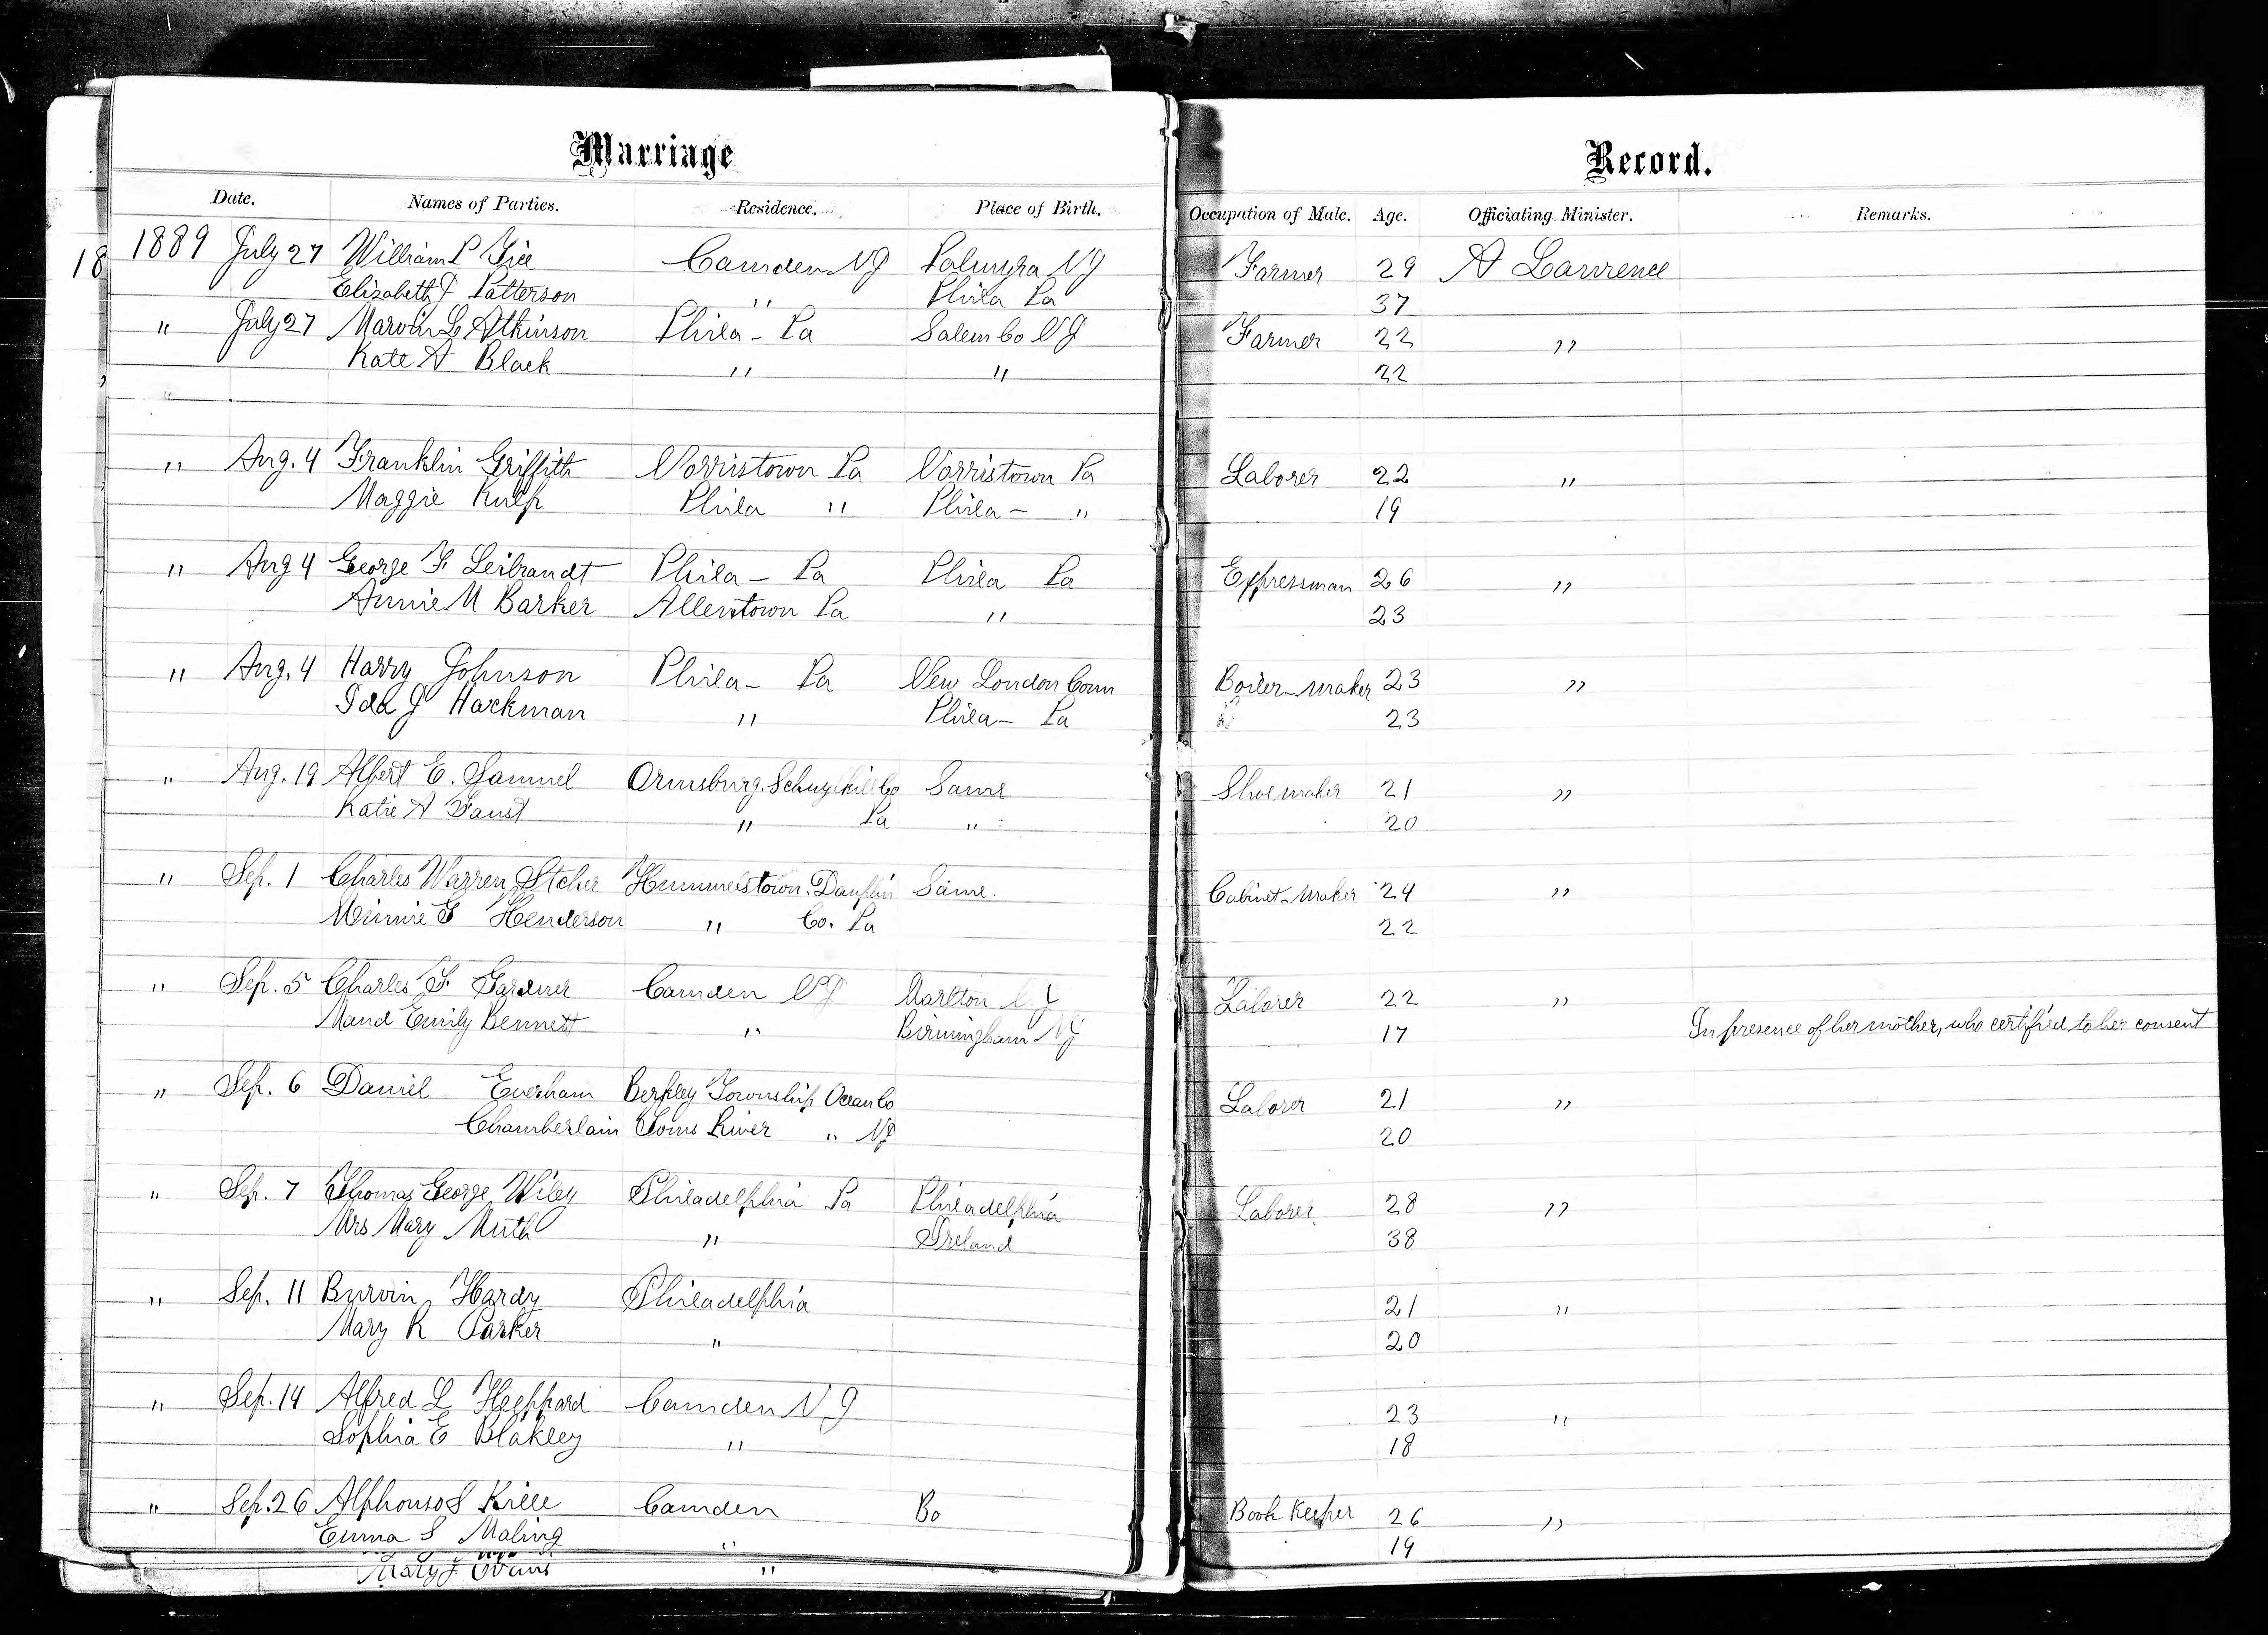 Marriage Record.
Date. Names of Parties. Residence. Place of Birth. Occupation of Male. Age. Officiating Minister. Remarks.
18 1889 July 27 William P Camden NJ Palmyra NJ Farmer 29 A Lawrence
Elizabeth J Patterson " Phila Pa 37
" July 27 Marvin L Atkinson Phila - Pa Salem Co NJ Farmer 22 "
Kate A Black " " 22
" Aug. 4 Franklin Griffith Norristown Pa Norristown Pa Laborer 22 "
Maggie Kulp Phila " Phila - " 19
" Aug 4 George F Leibrandt Phila - Pa Phila Pa Expressman 26 "
Annie M Barker Allentown Pa " 23
" Aug. 4 Harry Johnson Phila - Pa New London Conn Boiler-maker 23 "
Ida J Hackman " Phila - Pa 23
" Aug. 19 Albert E. Samuel Schuylkill Co Same Shoemaker 21 "
Katie A Faust " Pa " 20
" Sep. 1 Charles Warren Stcher Hummelstown. Dauphin Same. Cabinet-maker 24 "
Minnie G Henderson " Co. Pa 22
" Sep. 5 Charles F Gardner Camden NJ Marlton NJ Laborer 22 "
Maud Emily Bennett " Birmingham NJ 17 In presence of her mother, who certified to her consent
" Sep. 6 Daniel Everham Berkley Township Ocean Co Laborer 21 "
Chamberlain Toms River " NJ 20
" Sep. 7 Thomas George Wiley Philadelphia Pa Philadelphia Laborer 28 "
Mrs Mary Muth " Ireland 38
" Sep. 11 Burvin Hardy Philadelphia 21 "
Mary R Parker " 20
" Sep. 14 Alfred L Heppard Camden NJ 23 "
Sophia E Blakley " 18
" Sep. 26 Alphonso S Kille Camden Bo Book Keeper 26 "
Emma S Maling " 19
Mary J Evans "